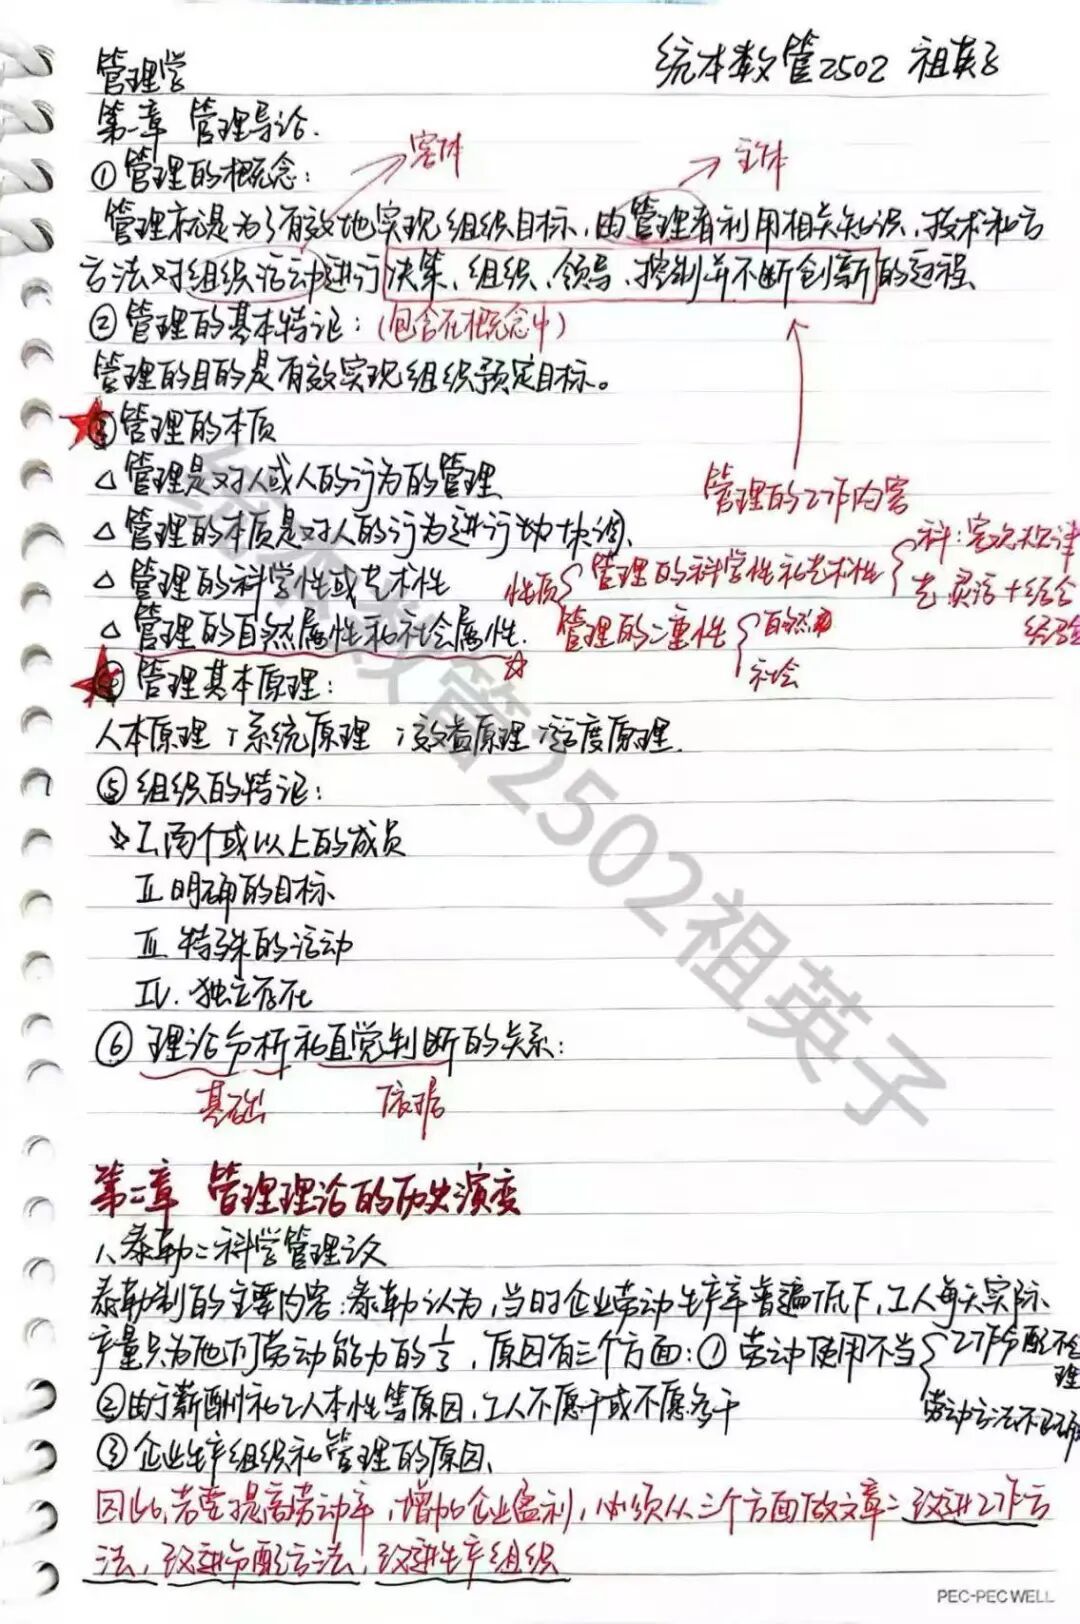 统本数管2502 祖英子
管理学
第一章 管理导论.
客体
主体
①管理的概念：
管理就是为了有效地实现组织目标，由管理者利用相关知识、技术和方
方法对组织活动进行决策、组织、领导、控制并不断创新的过程.
②管理的基本特征：(包含在概念中)
管理的目的是有效实现组织预定目标。
③管理的本质
△管理是对人或人的行为的管理
管理的工作内容
△管理的本质是对人的行为进行协调.
△管理的科学性或艺术性
性质 管理的科学性和艺术性 科：客观规律
艺 灵活+结合
经验
△管理的自然属性和社会属性.
管理的二重性 自然
社会
④管理基本原理：
人本原理；系统原理；效益原理；适度原理.
⑤组织的特征：
I.两个或以上的成员
II.明确的目标
III.特殊的活动
IV.独立存在
⑥理论分析和直觉判断的关系：
基础 依据
第二章 管理理论的历史演变
1、泰勒：科学管理
泰勒制的主要内容：泰勒认为，当时企业劳动生产率普遍低下，工人每天实际
产量只为他们劳动能力的⅓，原因有三个方面：①劳动使用不当 工作分配不合
理
劳动方法不正确
②由于薪酬和工人本性等原因，工人不愿干或不愿多干
③企业生产组织和管理的原因、
因此，若要提高劳动率，增加企业盈利，必须从三个方面做文章：改进工作方
法，改进分配方法，改进生产组织
PEC-PECWELL
统本数管2502祖英子